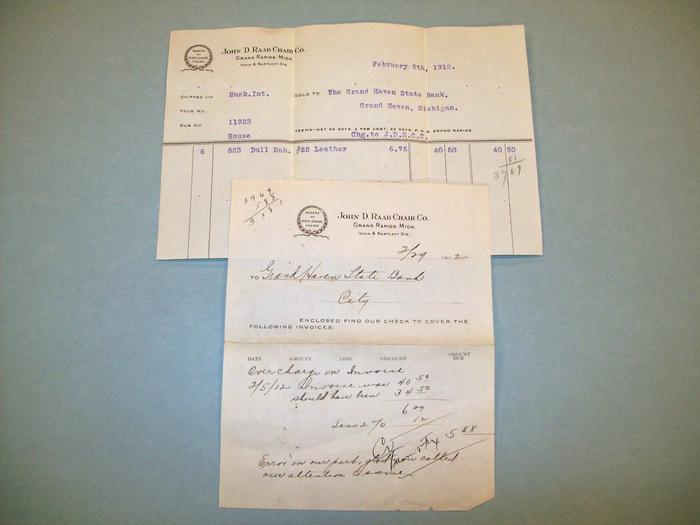 MAKERS OF HIGH-GRADE CHAIRS
JOHN D. RAAB CHAIR CO.
GRAND RAPIDS, MICH.
IONIA & BARTLETT STS.
February 5th, 1912.
SHIPPED VIA Musk.Int. SOLD TO The Grand Haven State Bank,
YOUR NO. Grand Haven, Michigan.
OUR NO. 11923 TERMS-NET 60 DAYS, 2 PER CENT. 30 DAYS, F.O.B. GRAND RAPIDS
House Chg.to J.D.R.C.C.
6 523 Dull Mah. #22 Leather 6.75 40 50 40 50
81
39 69
39 69
5 88
33 81
MAKERS OF HIGH-GRADE CHAIRS
JOHN D. RAAB CHAIR CO.
GRAND RAPIDS, MICH.
IONIA & BARTLETT STS.
2/29 1912
TO Grand Haven State Bank
City
ENCLOSED FIND OUR CHECK TO COVER THE
FOLLOWING INVOICES:
DATE AMOUNT LESS DISCOUNT AMOUNT DUE
Over charge on Invoice
2/5/12 Invoice was 40 50
should have been 34 50
6 00
Less 2 % 12
5 88
Error on our part, glad you called
our attention to same